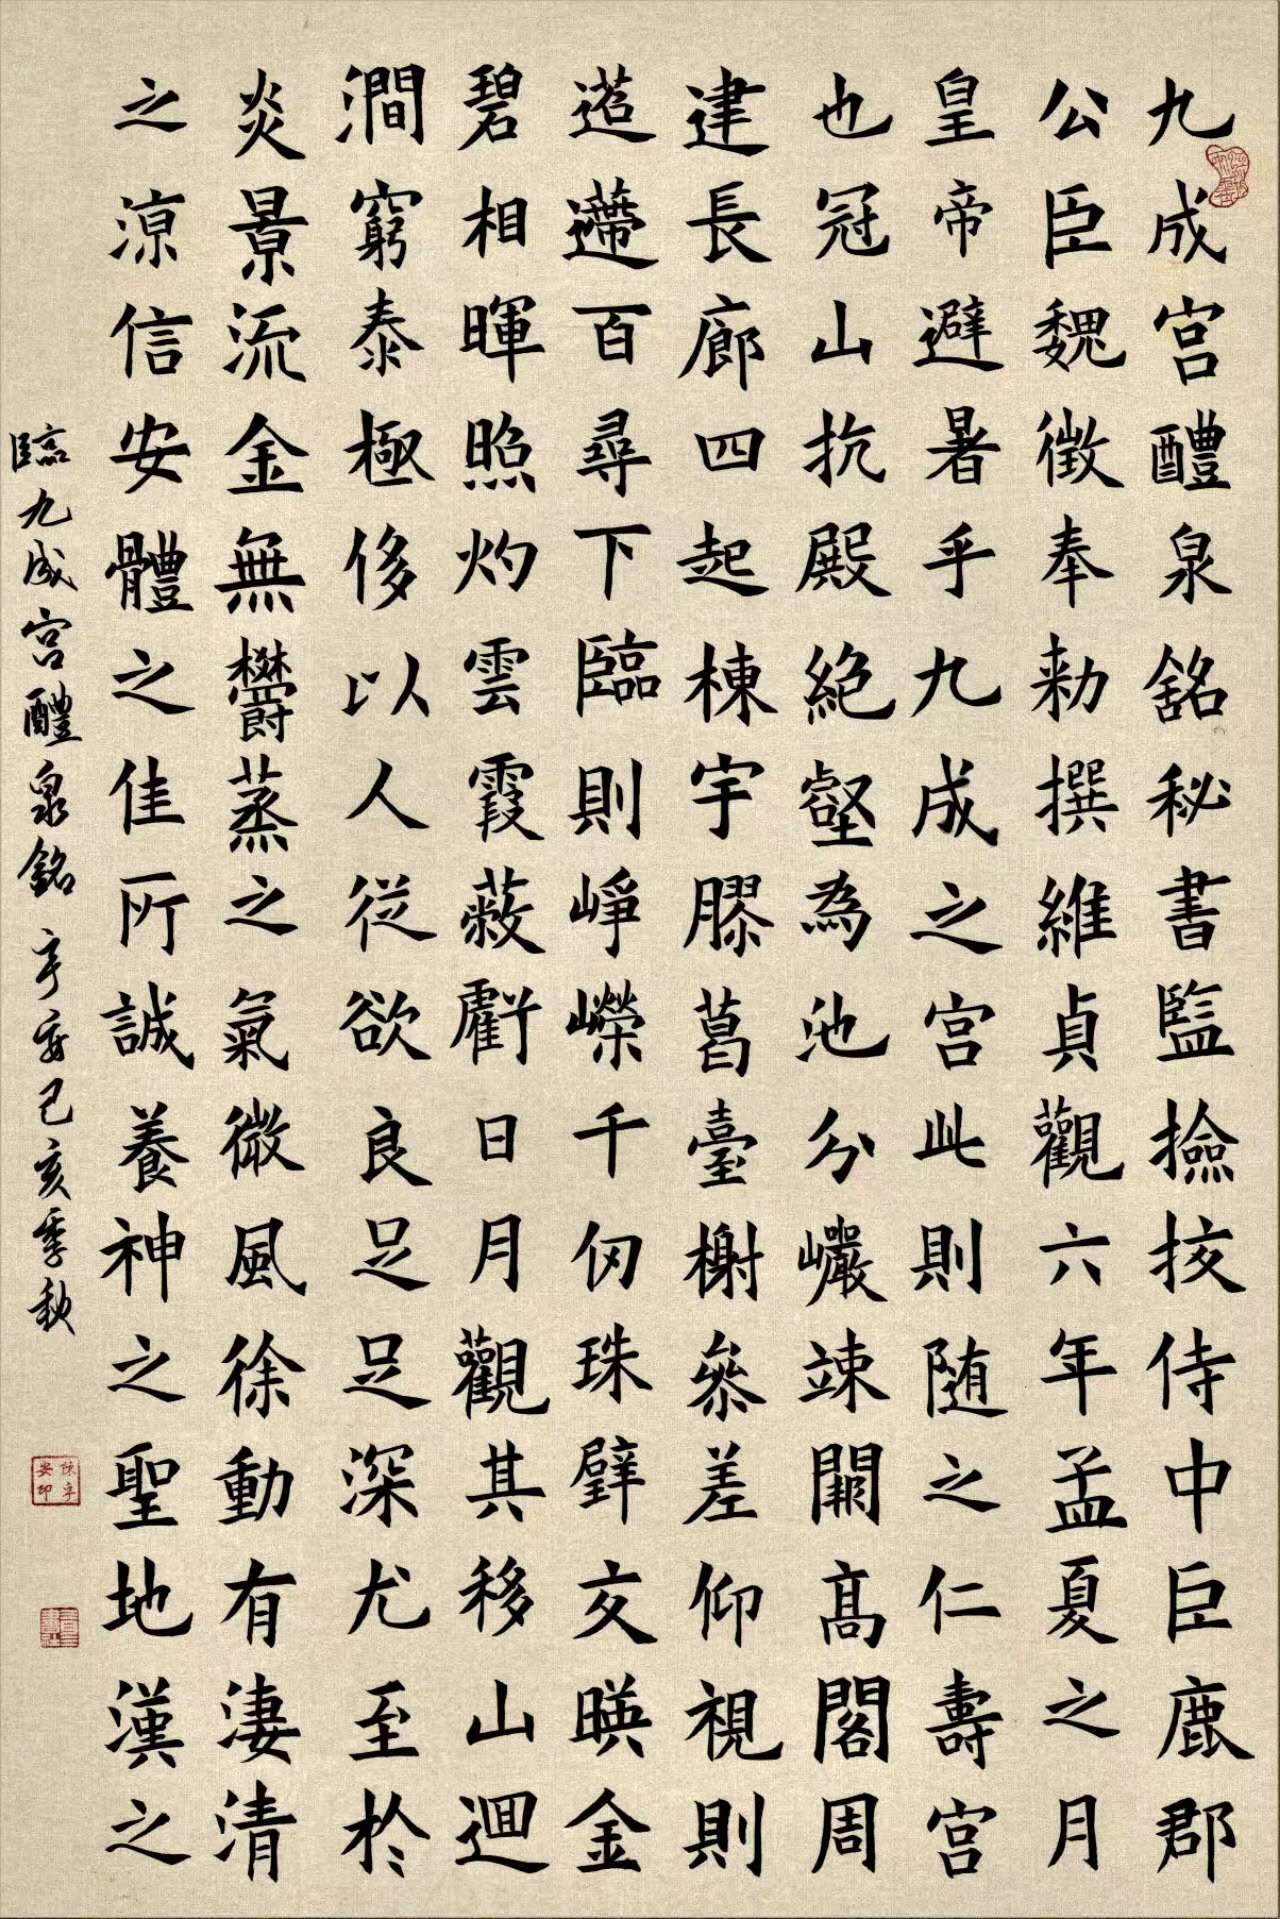 九成宫醴泉銘秘書監撿挍侍中臣鹿郡
公臣魏徵奉勑撰維貞觀六年孟夏之月
皇帝避暑乎九成之宫此則随之仁壽宫
也冠山抗殿絶壑為池分巖竦闕髙閣周
建長廊四起棟宇膠葛臺榭參差仰視則
迢遰百尋下臨則崢嶸千仞珠璧交暎金
碧相暉照灼雲霞蔽虧日月觀其移山迴
澗窮泰極侈以人從欲良足足深尤至於
炎景流金無鬱蒸之氣微風徐動有淒清
之涼信安體之佳所誠養神之聖地漢之
臨九成宫醴泉銘 辛安己亥季秋